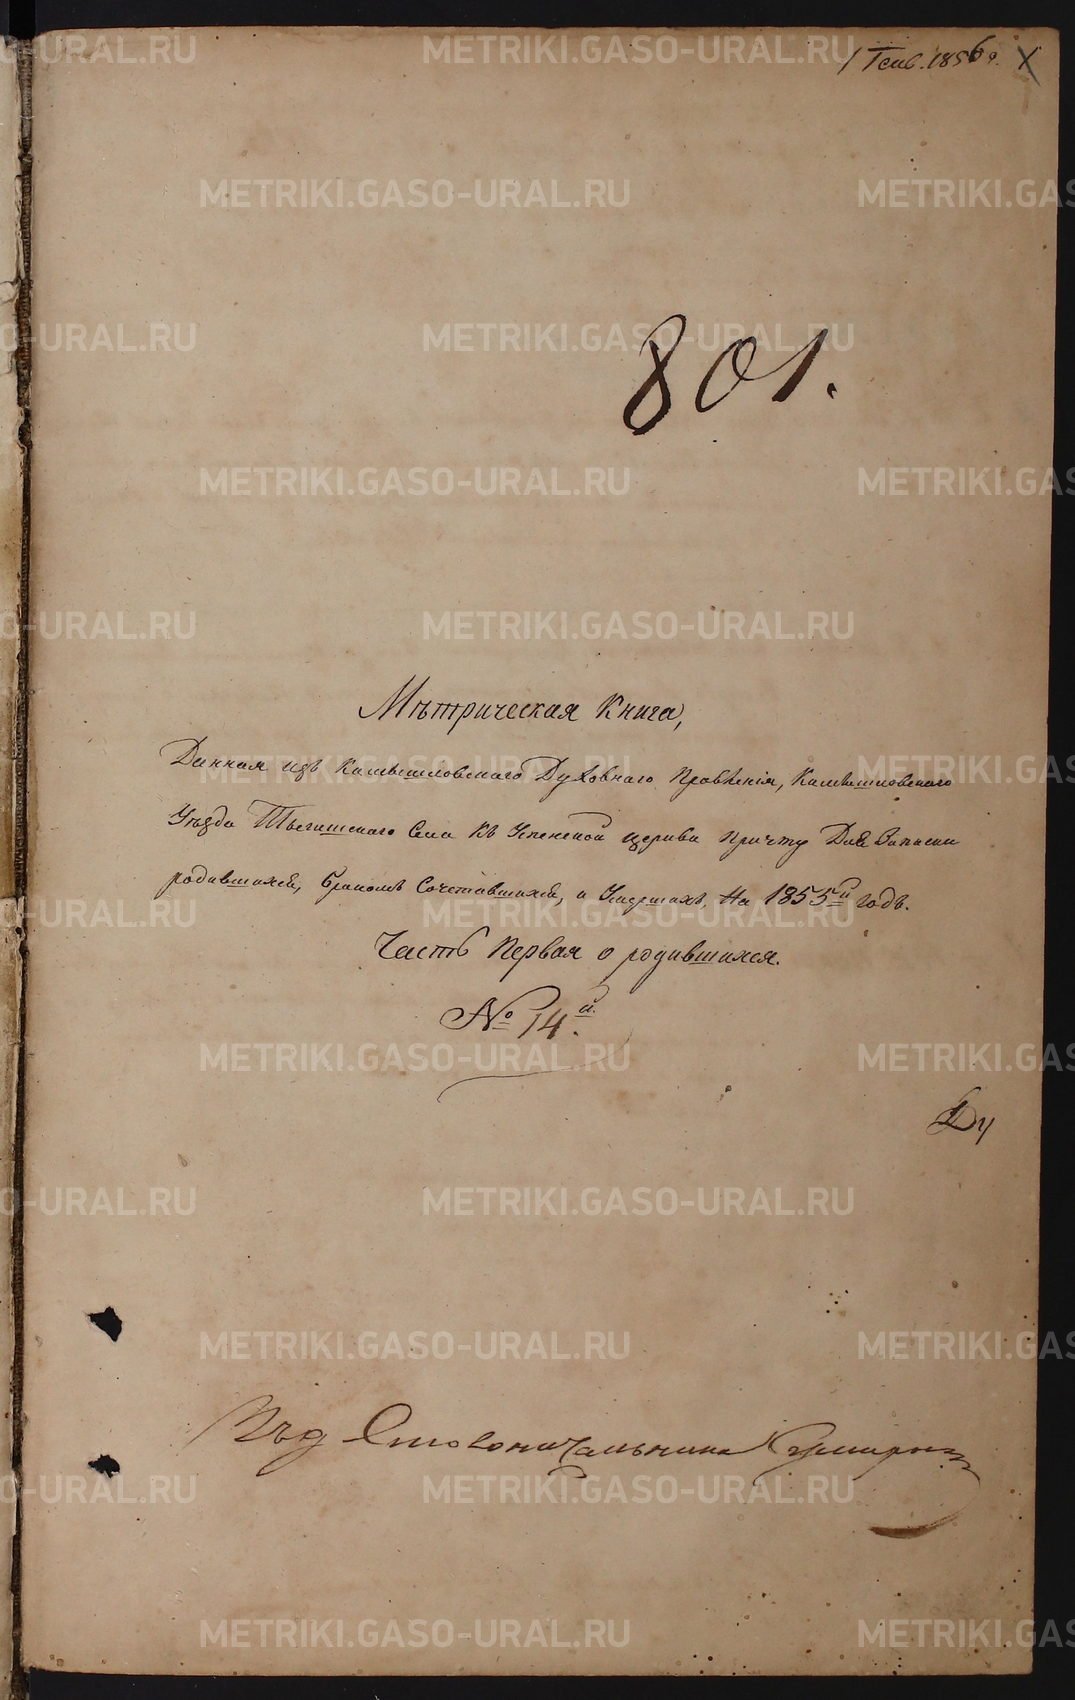 1 Генв. 1856 г.
801.
Мѣтрическая Книга,
Данная изъ Камышловскаго Духовнаго Правленія, Камышловскаго
Уѣзда Тыгишскаго Села къ Успенской церкви причту Для Записки
родившихся, бракомъ Сочетавшихся, и Умершихъ. На 1855й годъ.
Часть Первая о родившихся.
№ 14й.
Ду
Столоначальника
METRIKI.GASO-URAL.RU